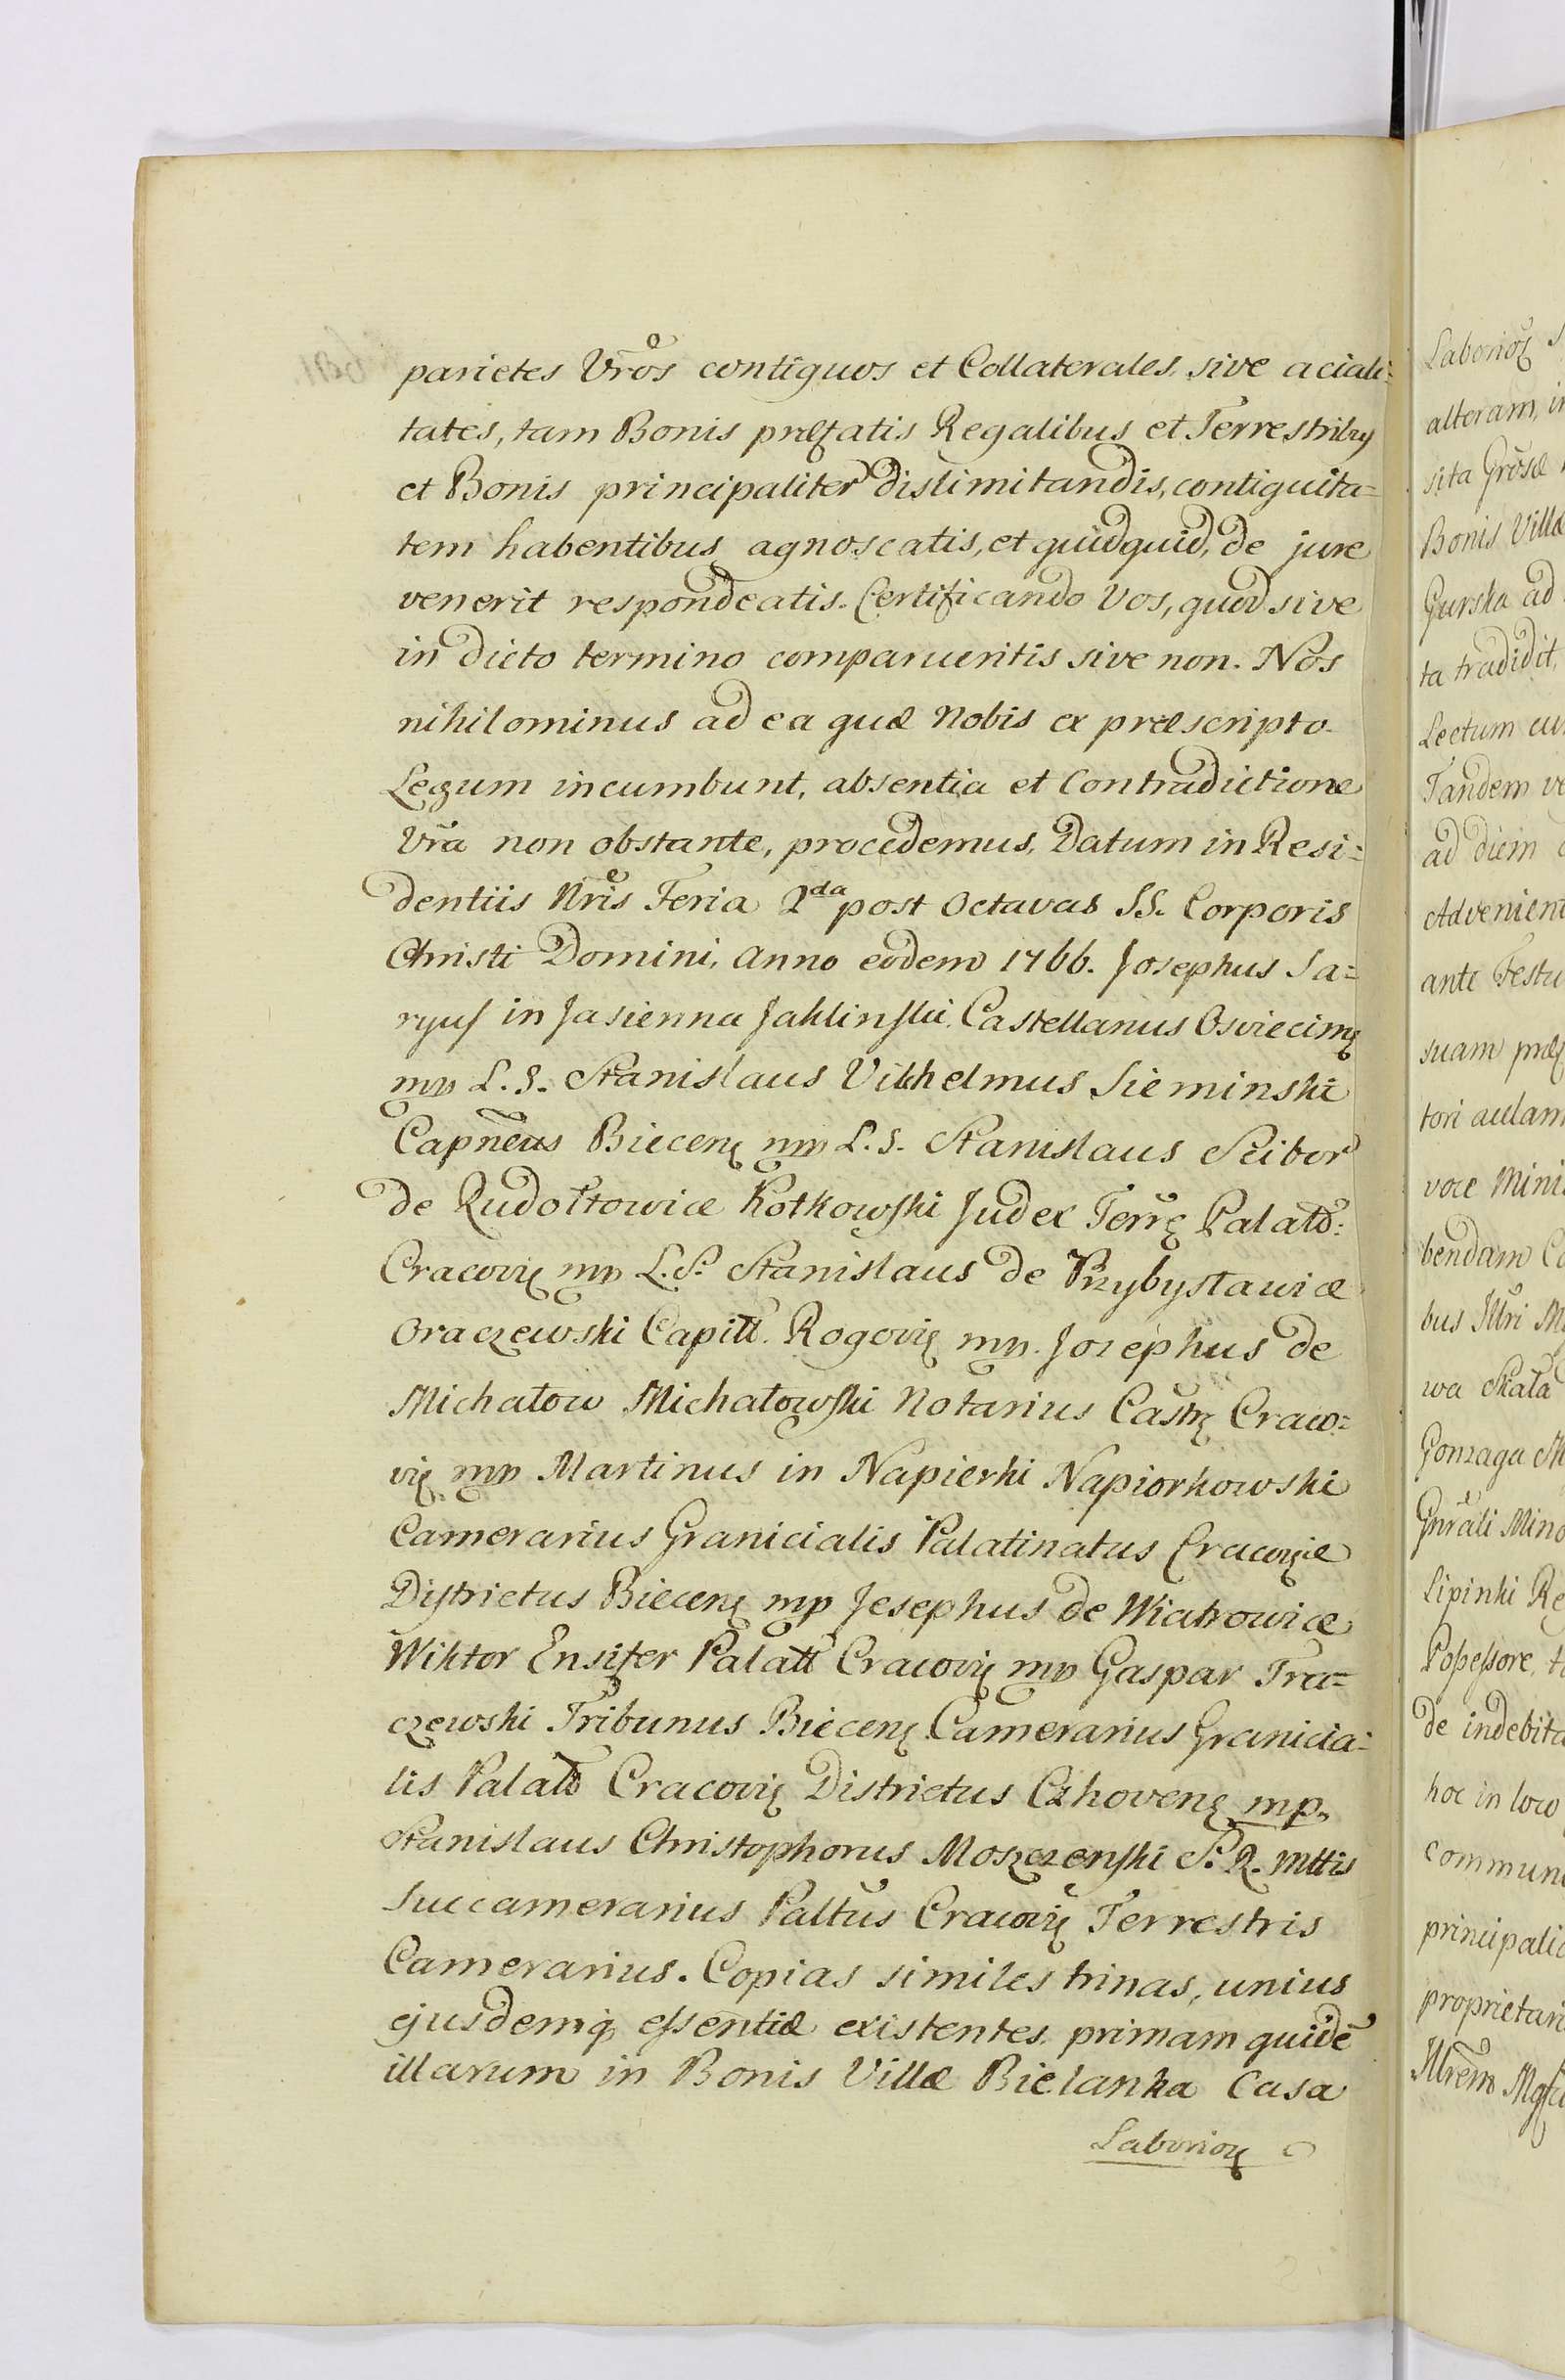 parietes Vr̃os contiguos et Collaterales, sive aciali=
tates, tam Bonis præfatis Regalibus et Terrestribus
et Bonis principaliter dislimitandis, contiguita=
tem habentibus agnoscatis, et quidquid, de jure
venerit respondeatis. Certificando Vos, quod sive
in dicto termino comparueritis sive non. Nos
nihilominus ad ea quæ nobis ex præscripto
Legum incumbunt, absentia et Contradictione
Vr̃a non obstante, procedemus, Datum in Resi=
dentiis Nr̃is Feria 2da post Octavas SS. Corporis
Christi Domini, Anno eodem 1766. Josephus Sa=
ryusz in Jasienna Jaklinski, Castellanus Osviecimę
mp L.S. Stanislaus Vilhelmus Sieminski
Capñeus Biecenę mp L.S. Stanislaus Scibor
de Rudołtowice Kotkowski Judex Terrę Palatũ:
Cracovię mp L.S. Stanislaus de Przybysławice
Oraczewski Capitt. Rogovię mp. Josephus de
Michałow Michałowski Notarius Castrę Craco=
vię mp Martinus in Napierki Napiorkowski
Camerarius Granicialis Palatinatus Cracovię
Districtus Biecenę mp Jesephus de Wiatrowice
Wiktor Ensifer Palatt Cracovię mp Gaspar Tra=
czewski Tribunus Biecenę Camerarius Granicia=
lis Palatũ Cracovię Districtus Czhovenę mp.
Stanislaus Christophorus Moszczenski S. R. Mttis
Succamerarius Paltũs Cracovię Terrestris
Camerarius. Copias similes trinas, unius
ejusdemq́ essentiæ existentes, primam quidẽ
illarum in Bonis Villæ Bielanka Casa
Laborioę
Laborioę
alteram, in
sita Grõsæ
Bonis Villæ
Gurska ad
ta tradidit,
Lectum cu
Tandem ve
ad diem
Advenient
ante Festu
suam præf
tori aulam
voce Minis
bendam Co
bus Illri M
wa Skała
Gonzaga M
Gnr̃ali Mino
Lipinki Re
Possessore, t
de indebita
hoc in loco
commun
principali
proprietari
Illrem Mgfi